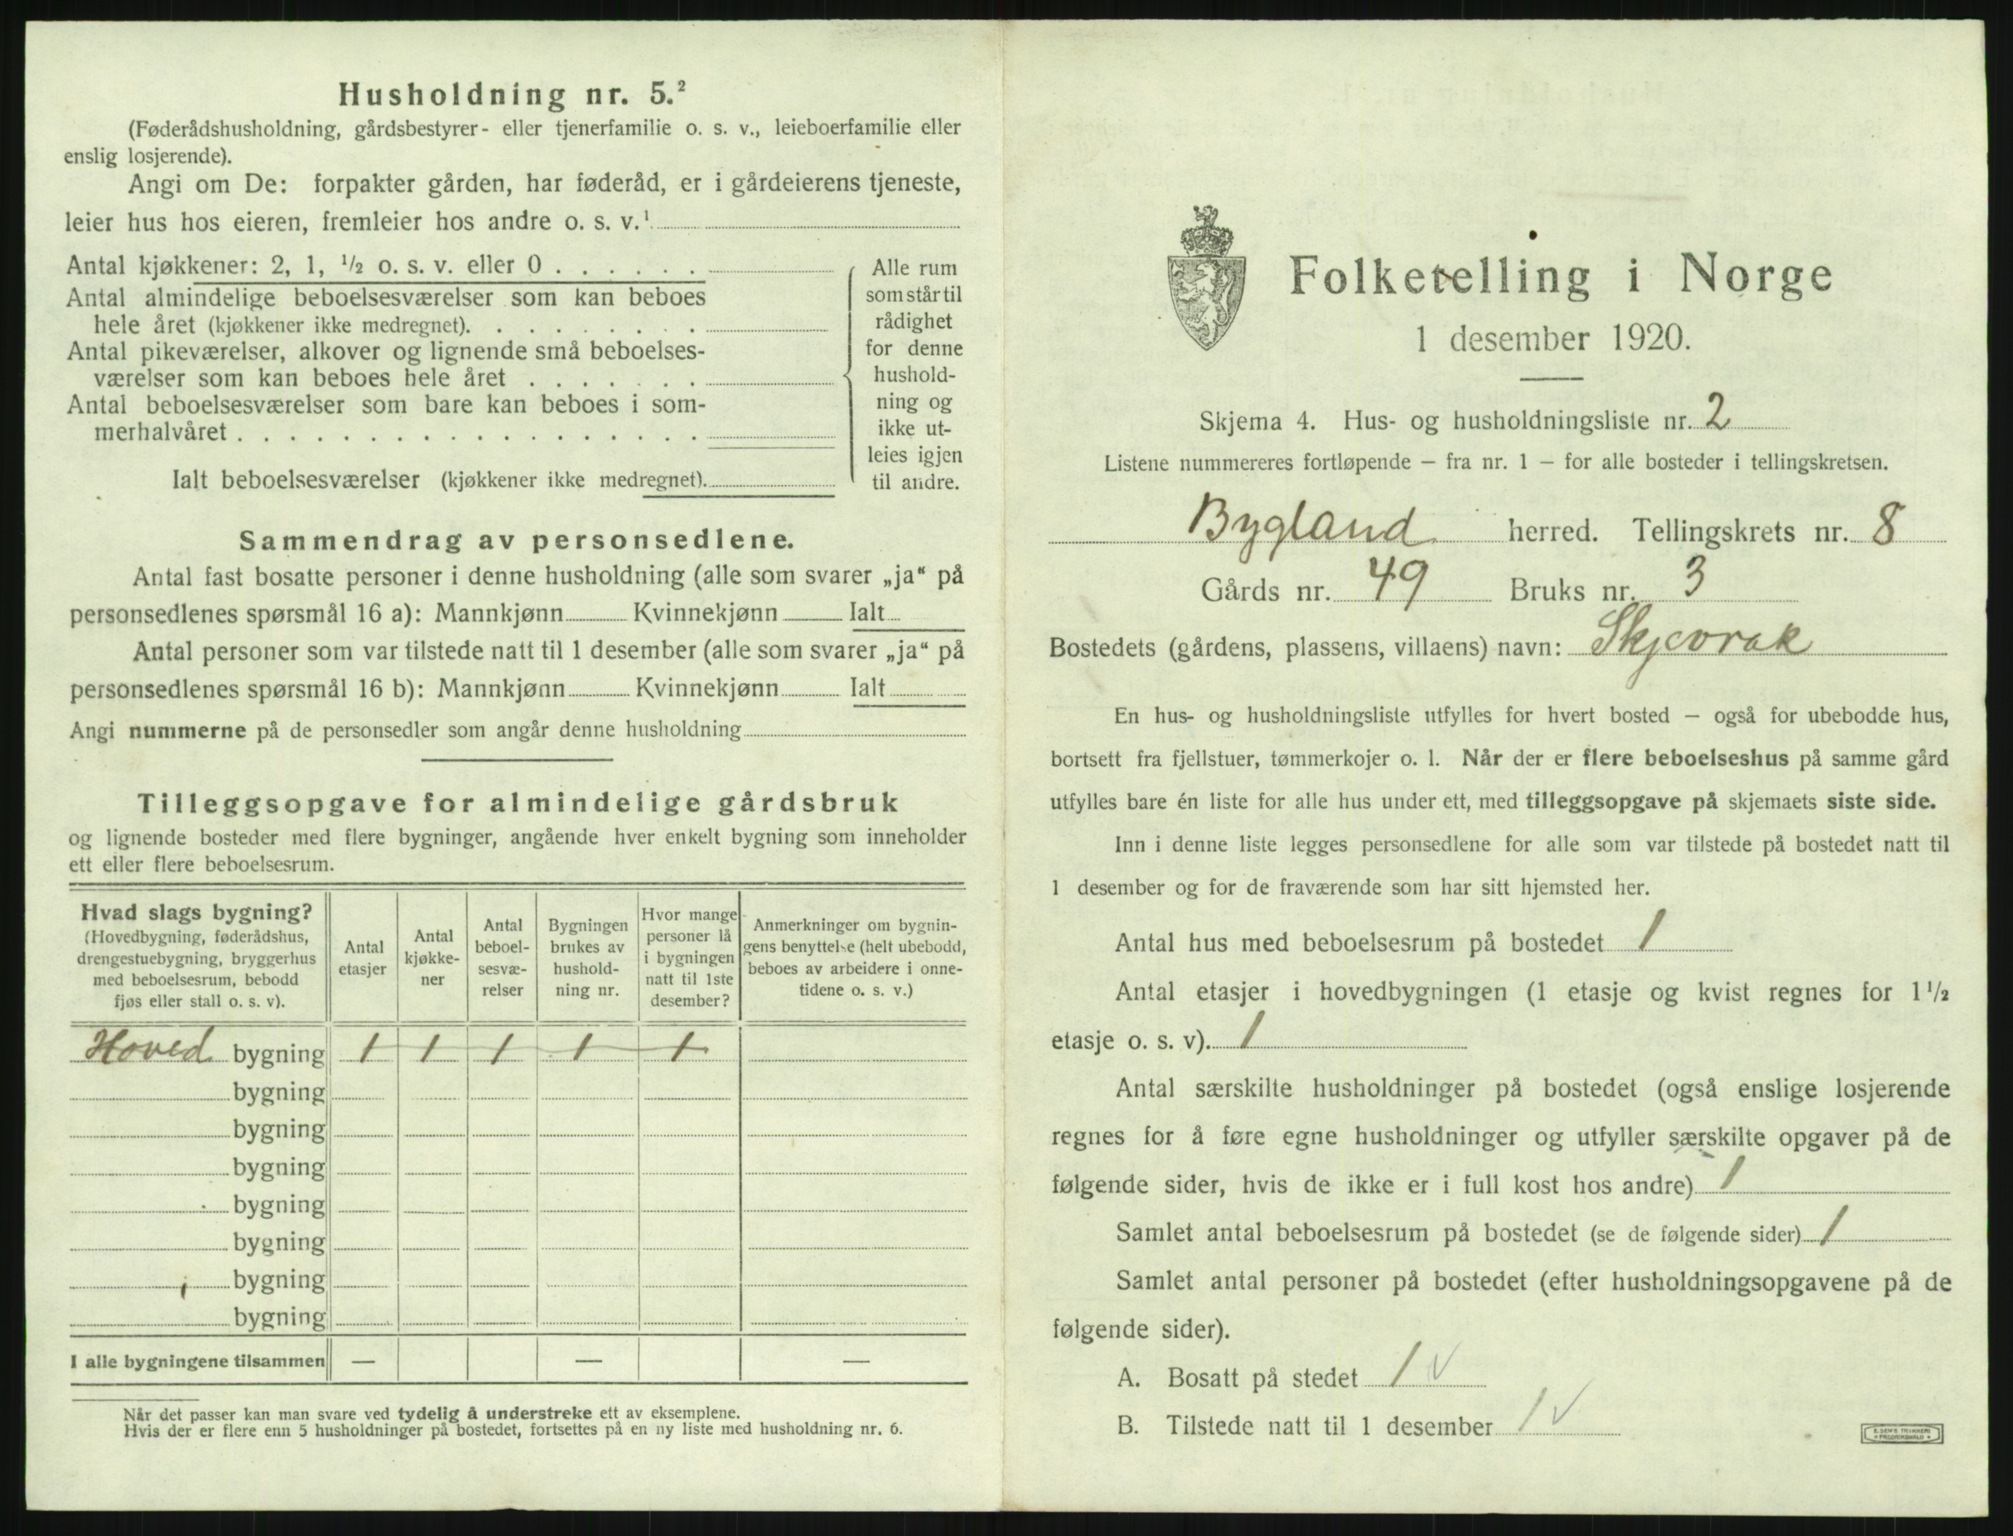 Husholdning nr. 5.²
(Føderådshusholdning, gårdsbestyrer- eller tjenerfamilie o. s. v., leieboerfamilie eller
enslig losjerende).
Angi om De: forpakter gården, har føderåd, er i gårdeierens tjeneste,
leier hus hos eieren, fremleier hos andre o. s. v.¹
Antal kjøkkener: 2, 1, ½ o. s. v. eller 0 . . . . . .
Antal almindelige beboelsesværelser som kan beboes
hele året (kjøkkener ikke medregnet). . . . . . . . .
Antal pikeværelser, alkover og lignende små beboelses-
værelser som kan beboes hele året . . . . . . .
Antal beboelsesværelser som bare kan beboes i som-
merhalvåret . . . . . . . . . . . . . . . . . .
Ialt beboelsesværelser (kjøkkener ikke medregnet).
Alle rum
som står til
rådighet
for denne
hushold-
ning og
ikke ut-
leies igjen
til andre.
Sammendrag av personsedlene.
Antal fast bosatte personer i denne husholdning (alle som svarer „ja“ på
personsedlenes spørsmål 16 a): Mannkjønn Kvinnekjønn Ialt
Antal personer som var tilstede natt til 1 desember (alle som svarer „ja“ på
personsedlenes spørsmål 16 b): Mannkjønn Kvinnekjønn Ialt
Angi nummerne på de personsedler som angår denne husholdning
Tilleggsopgave for almindelige gårdsbruk
og lignende bosteder med flere bygninger, angående hver enkelt bygning som inneholder
ett eller flere beboelsesrum.
Hvad slags bygning?
(Hovedbygning, føderådshus,
drengestuebygning, bryggerhus
med beboelsesrum, bebodd
fjøs eller stall o. s. v).
Antal
etasjer
Antal
kjøkke-
ner
Antal
beboel-
sesvæ-
relser
Bygningen
brukes av
hushold-
ning nr.
Hvor mange
personer lå
i bygningen
natt til 1ste
desember?
Anmerkninger om bygnin-
gens benyttelse (helt ubebodd,
beboes av arbeidere i onne-
tidene o. s. v.)
Hoved bygning 1 1 1 1 1
bygning
bygning
bygning
bygning
bygning
bygning
bygning
I alle bygningene tilsammen — — —
Når det passer kan man svare ved tydelig å understreke ett av eksemplene.
Hvis der er flere enn 5 husholdninger på bostedet, fortsettes på en ny liste med husholdning nr. 6.
Folketelling i Norge
1 desember 1920.
Skjema 4. Hus- og husholdningsliste nr. 2
Listene nummereres fortløpende – fra nr. 1 – for alle bosteder i tellingskretsen.
Bygland herred. Tellingskrets nr. 8
Gårds nr. 49 Bruks nr. 3
Bostedets (gårdens, plassens, villaens) navn: Skjevrak
En hus- og husholdningsliste utfylles for hvert bosted – også for ubebodde hus,
bortsett fra fjellstuer, tømmerkojer o. l. Når der er flere beboelseshus på samme gård
utfylles bare én liste for alle hus under ett, med tilleggsopgave på skjemaets siste side.
Inn i denne liste legges personsedlene for alle som var tilstede på bostedet natt til
1 desember og for de fraværende som har sitt hjemsted her.
Antal hus med beboelsesrum på bostedet 1
Antal etasjer i hovedbygningen (1 etasje og kvist regnes for 1½
etasje o. s. v). 1
Antal særskilte husholdninger på bostedet (også enslige losjerende
regnes for å føre egne husholdninger og utfyller særskilte opgaver på de
følgende sider, hvis de ikke er i full kost hos andre) 1
Samlet antal beboelsesrum på bostedet (se de følgende sider) 1
Samlet antal personer på bostedet (efter husholdningsopgavene på de
følgende sider).
A. Bosatt på stedet 1 v
B. Tilstede natt til 1 desember 1 v